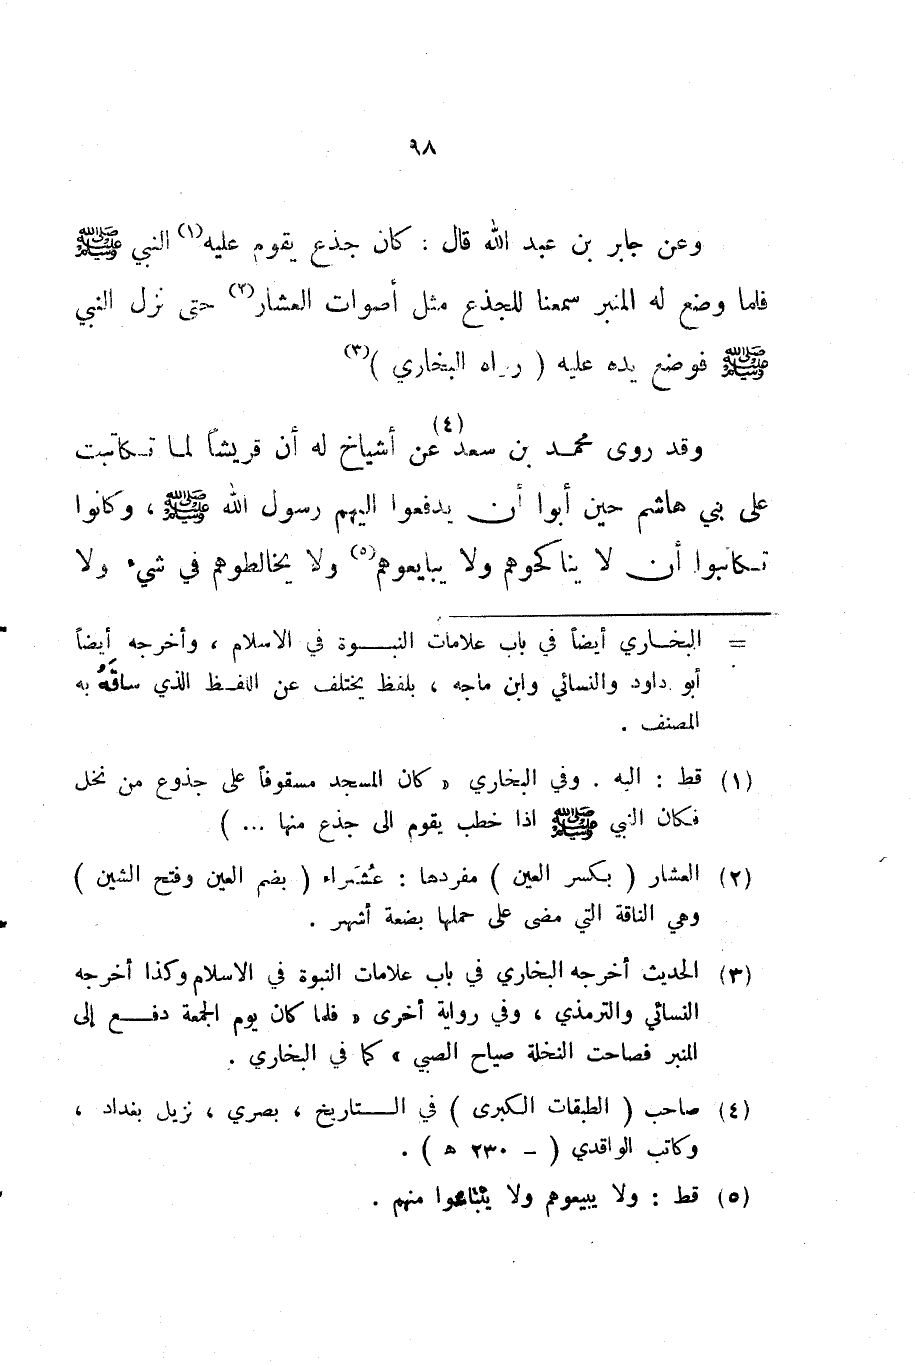 ٩٨
وعن جابر بن عبد الله قال : كان جذع يقوم عليه(١) النبي ﷺ
فلما وضع له المنبر سمعنا للجذع مثل أصوات العشار(٢) حتى نزل النبي
ﷺ فوضع يده عليه ( رواه البخاري )(٣)
وقد روى محمد بن سعد(٤) عن أشياخ له أن قريشاً لما تكاتبت
على بني هاشم حين أبوا أن يدفعوا اليهم رسول الله ﷺ ، وكانوا
تكاتبوا أن لا يناكحوهم ولا يبايعوهم(٥) ولا يخالطوهم في شيء ولا
= البخاري أيضاً في باب علامات النبوة في الاسلام ، وأخرجه أيضاً
أبو داود والنسائي وابن ماجه ، بلفظ يختلف عن اللفظ الذي ساقَهُ به
المصنف .
(١) قط : اليه . وفي البخاري « كان المسجد مسقوفاً على جذوع من نخل
فكان النبي ﷺ اذا خطب يقوم الى جذع منها ... )
(٢) العشار ( بكسر العين ) مفردها : عُشَراء ( بضم العين وفتح الشين )
وهي الناقة التي مضى على حملها بضعة أشهر .
(٣) الحديث أخرجه البخاري في باب علامات النبوة في الاسلام وكذا أخرجه
النسائي والترمذي ، وفي رواية أخرى « فلما كان يوم الجمعة دفع إلى
المنبر فصاحت النخلة صياح الصبي » كما في البخاري .
(٤) صاحب ( الطبقات الكبرى ) في التاريخ ، بصري ، نزيل بغداد ،
وكاتب الواقدي ( - ٢٣٠ ه ) .
(٥) قط : ولا يبيعوهم ولا يبتاعوا منهم .